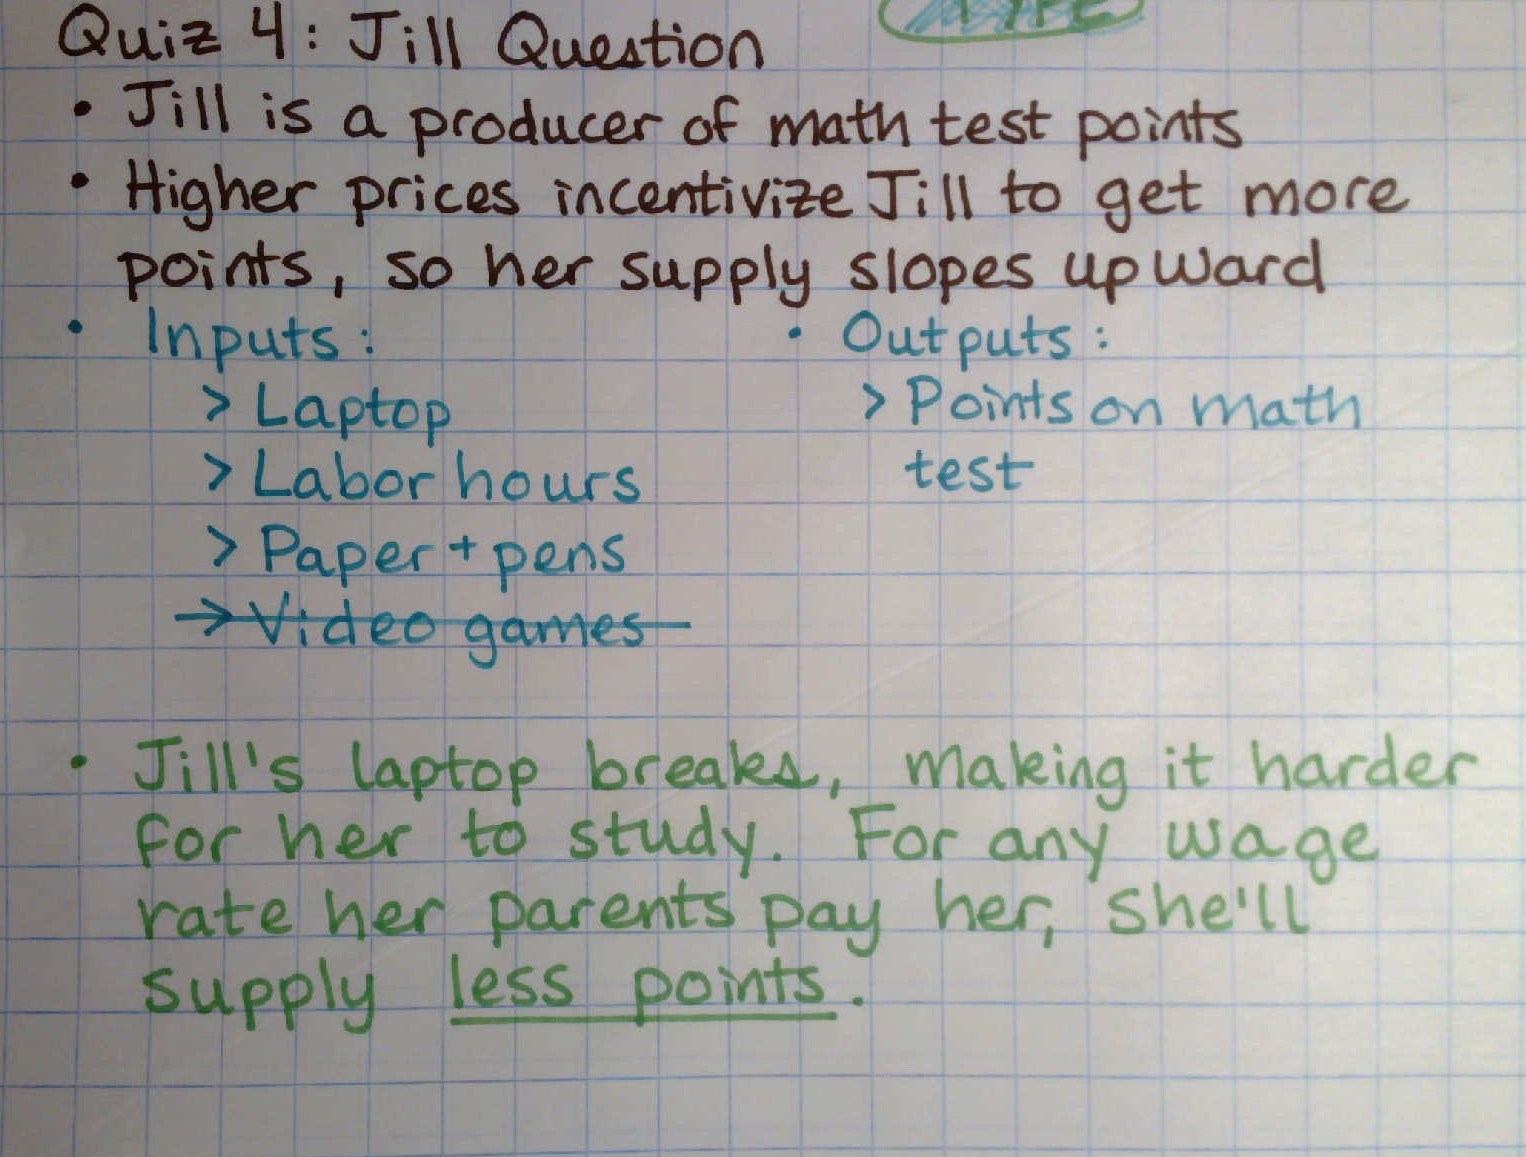 TYPE
Quiz 4: Jill Question
• Jill is a producer of math test points
• Higher prices incentivize Jill to get more
points, so her supply slopes upward
• Inputs:
> Laptop
> Labor hours
> Paper + pens
→ Video games
• Outputs:
> Points on math
test
• Jill's laptop breaks, making it harder
for her to study. For any wage
rate her parents pay her, she'll
supply less points.